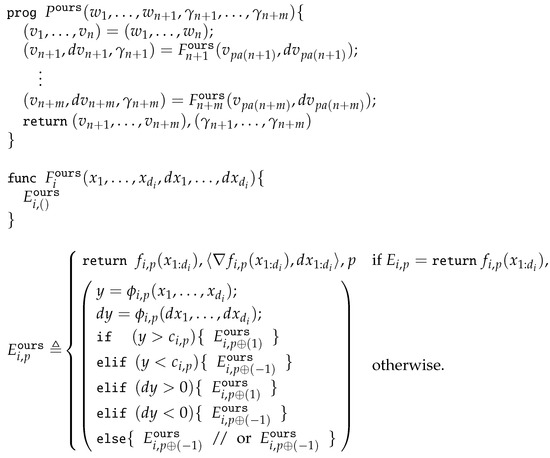 prog P^ours(w_1, . . . , w_{n+1}, γ_{n+1}, . . . , γ_{n+m}){
(v_1, . . . , v_n) = (w_1, . . . , w_n);
(v_{n+1}, dv_{n+1}, γ_{n+1}) = F^ours_{n+1}(v_{pa(n+1)}, dv_{pa(n+1)});
⋮
(v_{n+m}, dv_{n+m}, γ_{n+m}) = F^ours_{n+m}(v_{pa(n+m)}, dv_{pa(n+m)});
return (v_{n+1}, . . . , v_{n+m}), (γ_{n+1}, . . . , γ_{n+m})
}
func F^ours_i(x_1, . . . , x_{d_i}, dx_1, . . . , dx_{d_i}){
E^ours_{i,()}
}
E^ours_{i,p} ≜
return f_{i,p}(x_{1:d_i}), ⟨∇f_{i,p}(x_{1:d_i}), dx_{1:d_i}⟩, p if E_{i,p} = return f_{i,p}(x_{1:d_i}),
y = ϕ_{i,p}(x_1, . . . , x_{d_i});
dy = ϕ_{i,p}(dx_1, . . . , dx_{d_i});
if (y > c_{i,p}){ E^ours_{i,p⊕(1)} }
elif (y < c_{i,p}){ E^ours_{i,p⊕(−1)} }
elif (dy > 0){ E^ours_{i,p⊕(1)} }
elif (dy < 0){ E^ours_{i,p⊕(−1)} }
else{ E^ours_{i,p⊕(−1)} // or E^ours_{i,p⊕(−1)} }
otherwise.